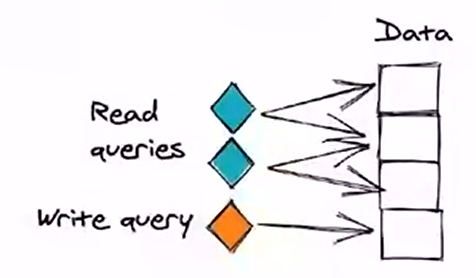 Data
Read
queries
Write query